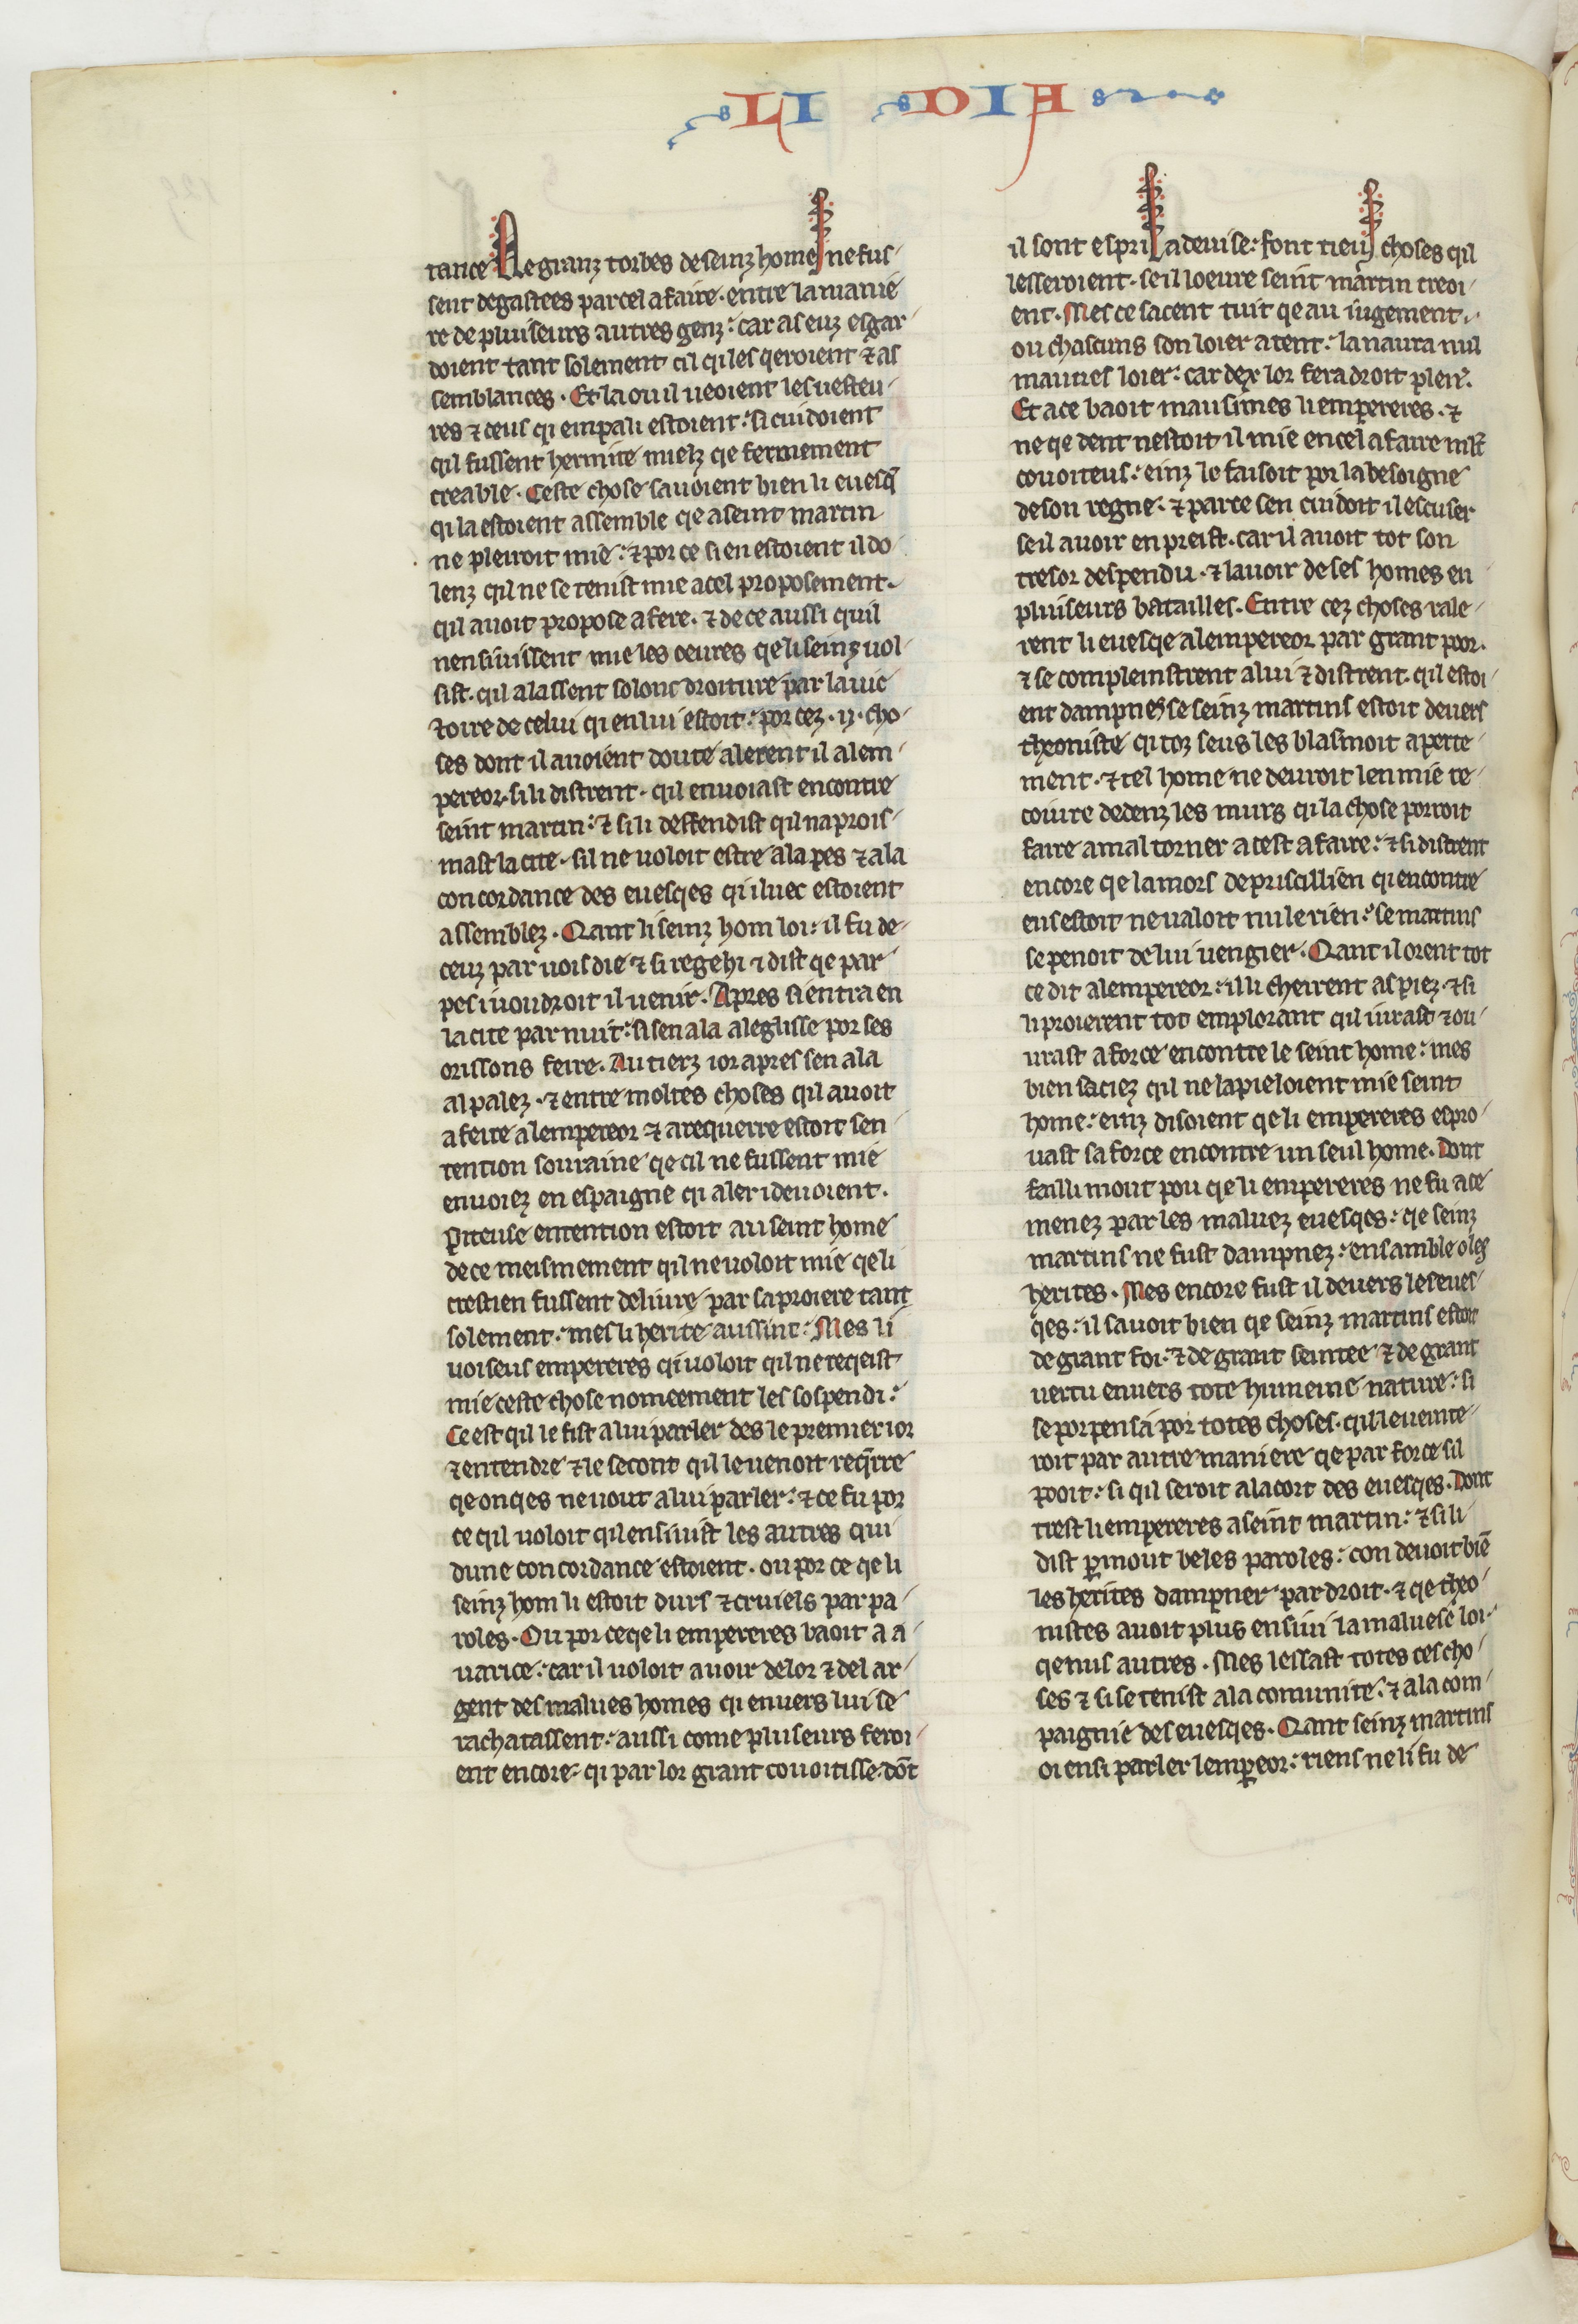 LI VIDA
tance. De granz torbes de seinz homes ne fus-
sent degastees par cel afaire. entre la manie
re de pluiseurs autres genz: car as euz esgar-
doient tant solement cil qi les qeroient ⁊ as
semblances. Et la ou il ueoient les uesteu-
res ⁊ ceus qi empali estoient: si cuidoient
qil fussent hermite mielz qe fermement
creable. Ceste chose sauoient bien li euesq̃
qi la estoient assemble qe a seint martin
ne pleiroit mie: ⁊ por ce si en estoient il do
lenz qil ne se tenist mie a cel proposement.
qil auoit propose a fere. ⁊ de ce aussi quil
nensiuissent mie les oeures qe li seinz uol-
sist. qil alassent solonc droiture par la uic
toire de celui qi en lui estoit: por cez .ij. cho-
ses dont il auoient doute alerent il a lem-
pereor. si li distrent. qil enuoiast encontre
seint martin: ⁊ si li deffendist qil naprois-
mast la cite. sil ne uoloit estre a la pes ⁊ a la
concordance des euesqes qi iluec estoient
assemblez. Qant li seinz hom loi: il fu de-
ceuz par uoisdie ⁊ si regehi ⁊ dist qe par
pes i uoudroit il uenir. Apres si entra en
la cite par nuit: si sen ala a leglisse por ses
orissons feire. Au tierz ior apres sen ala
al palez. ⁊ entre moltes choses qil auoit
a feire a lempereor ⁊ a requerre estoit sen
tention souraine qe cil ne fussent mie
enuoiez en espaigne qi aler i deuoient.
Piteuse entention estoit au seint home
de ce meismement qil ne uoloit mie qe li
crestien fussent deliure par sa proiere tant
solement: mes li herite aussint: Mes li
uoiseus empereres qi uoloit qil ne reqeist
mie ceste chose nomeement les sospendi:
Ce est qil le fist a lui parler des le premier ior
⁊ entendre ⁊ le secont qil le uenoit reqẽrre
qe onqes ne uout a lui parler: ⁊ ce fu por
ce qil uoloit qil ensiuist les autres qui
dune concordance estoient. ou por ce qe li
seinz hom li estoit durs ⁊ cruiels par pa-
roles. Ou por ce qe li empereres baoit a a-
uarice: car il uoloit auoir de lor ⁊ del ar-
gent des malues homes qi enuers lui se
rachatassent: aussi come pluseurs feroi-
ent encore: qi par lor grant couoitisse. dõt
il sont espri la deuise: font tieuj choses qil
lesseroient. se il loeure seint martin creoi-
ent. Mes ce sacent tuit qe au iugement.
ou chascuns son loier atent: la naura nul
mauues loier: car dex lor fera droit plen̾.
Et a ce baoit mausimes li empereres. ⁊
ne qe dent nestoit il mie en cel afaire ml̃t
couoiteus: einz le faisoit por la besoigne
de son regne. ⁊ par ce sen cuidoit il escuser
se il auoir en preist. car il auoit tot son
tresor despendu. ⁊ lauoir de ses homes en
pluiseurs batailles. Entre cez choses rale-
rent li euesqe a lempereor par grant poor.
⁊ se compleinstrent a lui ⁊ distrent. qil estoi-
ent dampnes se seinz martins estoit deuers
theoniste qi toz seus les blasmoit aperte-
ment. ⁊ tel home ne deuroit len mie re-
coiure dedenz les murs qi la chose porroit
faire a mal torner a cest afaire: ⁊ si distrent
encore qe la mors de priscillien qi encontre
eus estoit ne ualoit nule rien: se martins
se penoit de lui uengier. Qant il orent tot
ce dit a lempereor: il li cheirent as piez. ⁊ si
li proierent tot emplorant qil iurast ⁊ ou-
urast a force encontre le seint home: mes
bien saciez qil ne lapieloient mie seint
home: einz disoient qe li empereres espro-
uast sa force encontre un seul home. Dont
failli mout pou qe li empereres ne fu ace
menez par les maluez euesqes: qe seinz
martins ne fust dampnez: ensamble o les
herites. Mes encore fust il deuers les eues-
qes: il sauoit bien qe seinz martins estoit
de grant foi. ⁊ de grant seintee ⁊ de grant
uertu enuers tote humeine nature: si
se porpensa por totes choses. qil le ueinte-
roit par autre maniere qe par force sil
pooit: si qil seroit a lacort des euesqes. Dont
trest li empereres a seint martin: ⁊ si li
dist p̃ mout beles paroles: con deuoit biẽ
les herites dampner par droit. ⁊ qe theo-
nistes auoit plus ensiui la maluese loi.
qe nus autres. Mes lessast totes ces cho-
ses ⁊ si se tenist a la comunite: ⁊ a la com-
paignie des euesqes. Qant seinz martins
oi ensi parler lemp̃eor: riens ne li fu de